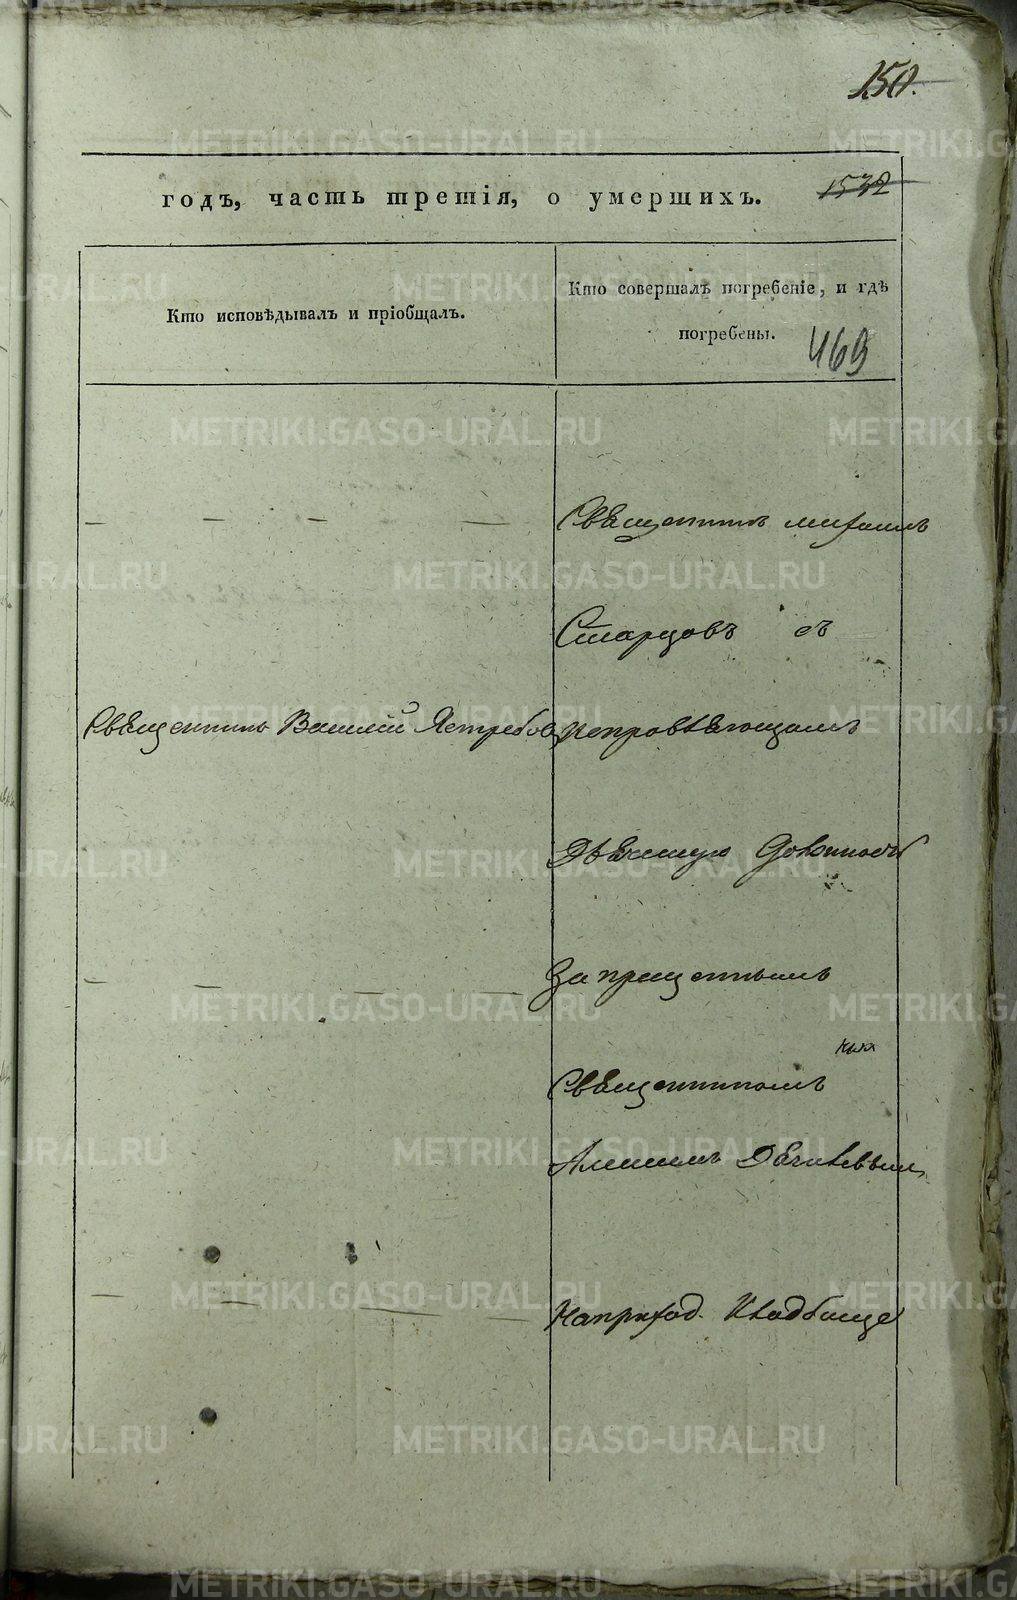 150.
годъ, часть третія, о умершихъ.
1532
Кто исповѣдывалъ и пріобщалъ.
Кто совершалъ погребеніе, и гдѣ
погребены.
469
— — — —
Священникъ михаилъ
Старцовъ съ
Священникъ Василій Ястребовъ
исправляющимъ
Дьячкую должность
— — — —
Запрещеннымъ
Священникомъ
Алексеемъ
— — — —
На приход. Кладбище
METRIKI.GASO-URAL.RU